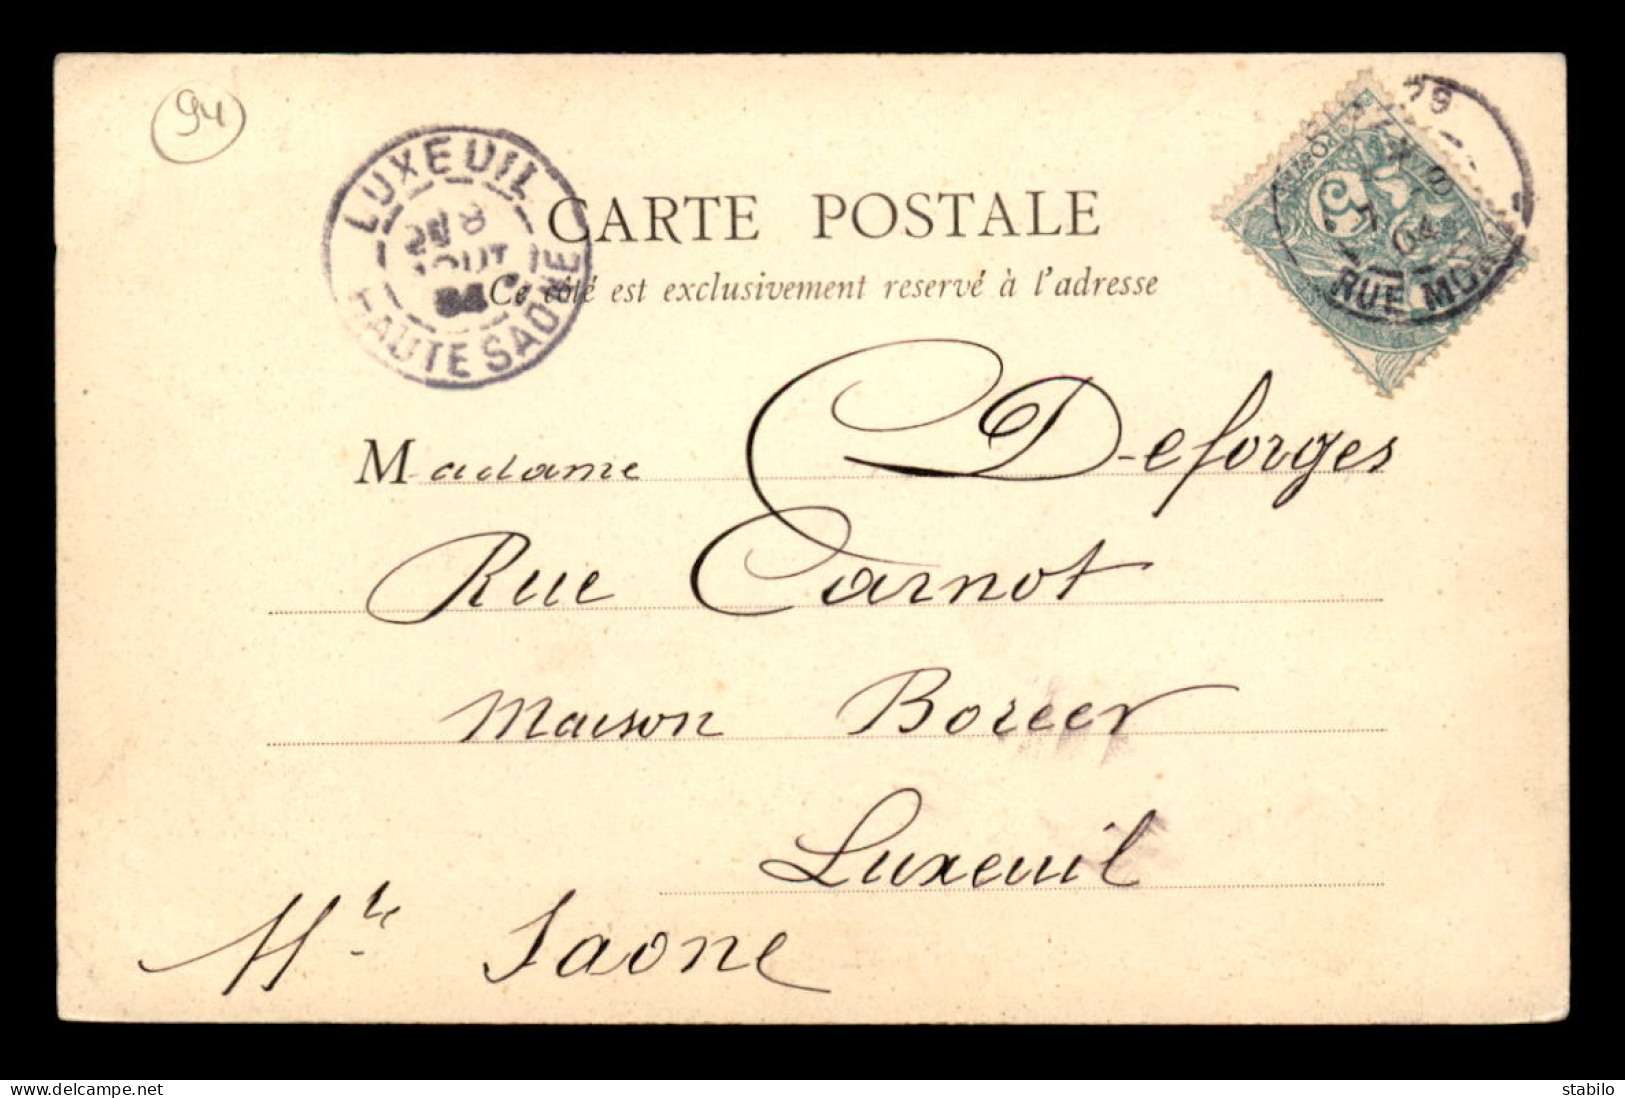 94
LUXEUIL
8
AOUT
HAUTE SAONE
CARTE POSTALE
Ce côté est exclusivement reservé à l'adresse
79
04
RUE
Madame Deforges
Rue Carnot
Maison
Luxeuil
Hte Saone
www.delcampe.net
stabilo